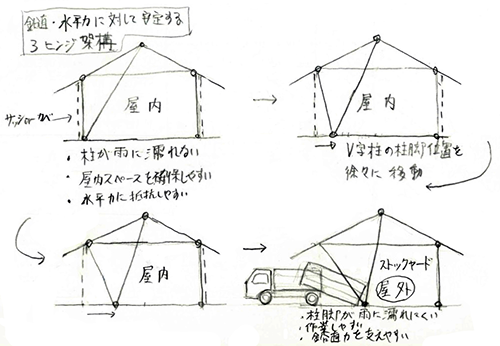 鉛直・水平力に対して安定する
3ヒンジ架構
屋内
サッシorカベ
・柱が雨に濡れない
・屋内スペースを確保しやすい
・水平力に抵抗しやすい
屋内
V字柱の柱脚位置を
徐々に移動
屋内
ストックヤード
屋外
・柱脚が雨に濡れにくい
・作業しやすい
・鉛直力を支えやすい